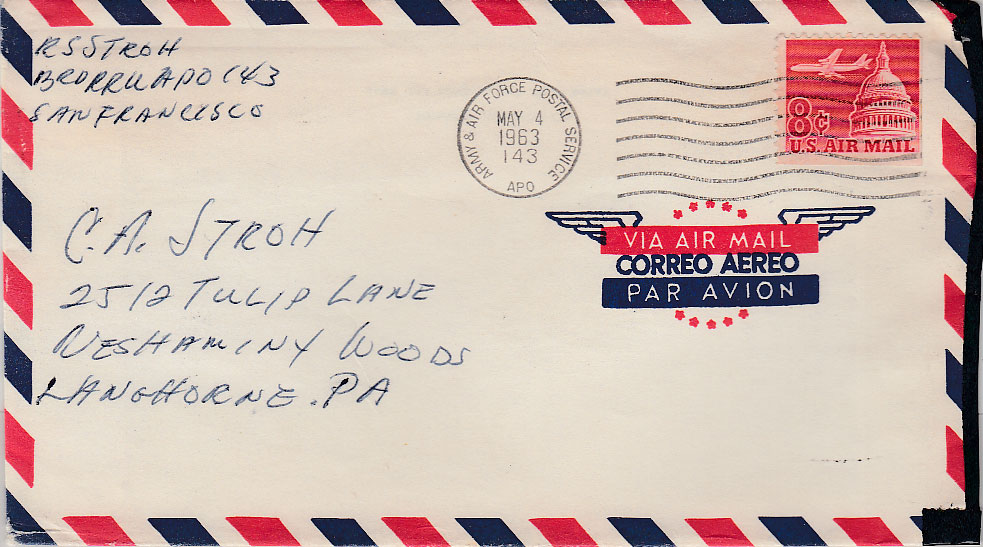 R S STROH
BRDRRU APO 143
SAN FRANCISCO
ARMY & AIR FORCE POSTAL SERVICE
MAY 4
1963
143
APO
8¢
U.S. AIR MAIL
VIA AIR MAIL
CORREO AEREO
PAR AVION
C. A. STROH
2512 TULIP LANE
NESHAMINY WOODS
LANGHORNE. PA